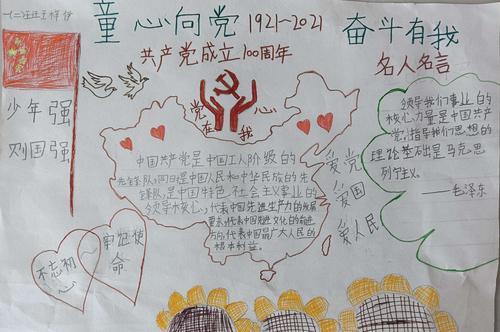 童心向党 1921~2021 奋斗有我
共产党成立100周年
名人名言
少年强
则国强
党在我心
中国共产党是中国工人阶级的
先锋队,同时是中国人民和中华民族的先
锋队,是中国特色社会主义事业的
领导核心,代表中国先进生产力的发展
要求,代表中国先进文化的前进
方向,代表中国最广大人民的
根本利益。
领导我们事业的
核心力量是中国共产
党,指导我们思想的
理论基础是马克思
列宁主义。
——毛泽东
爱党
爱国
爱人民
不忘初心
牢记使命